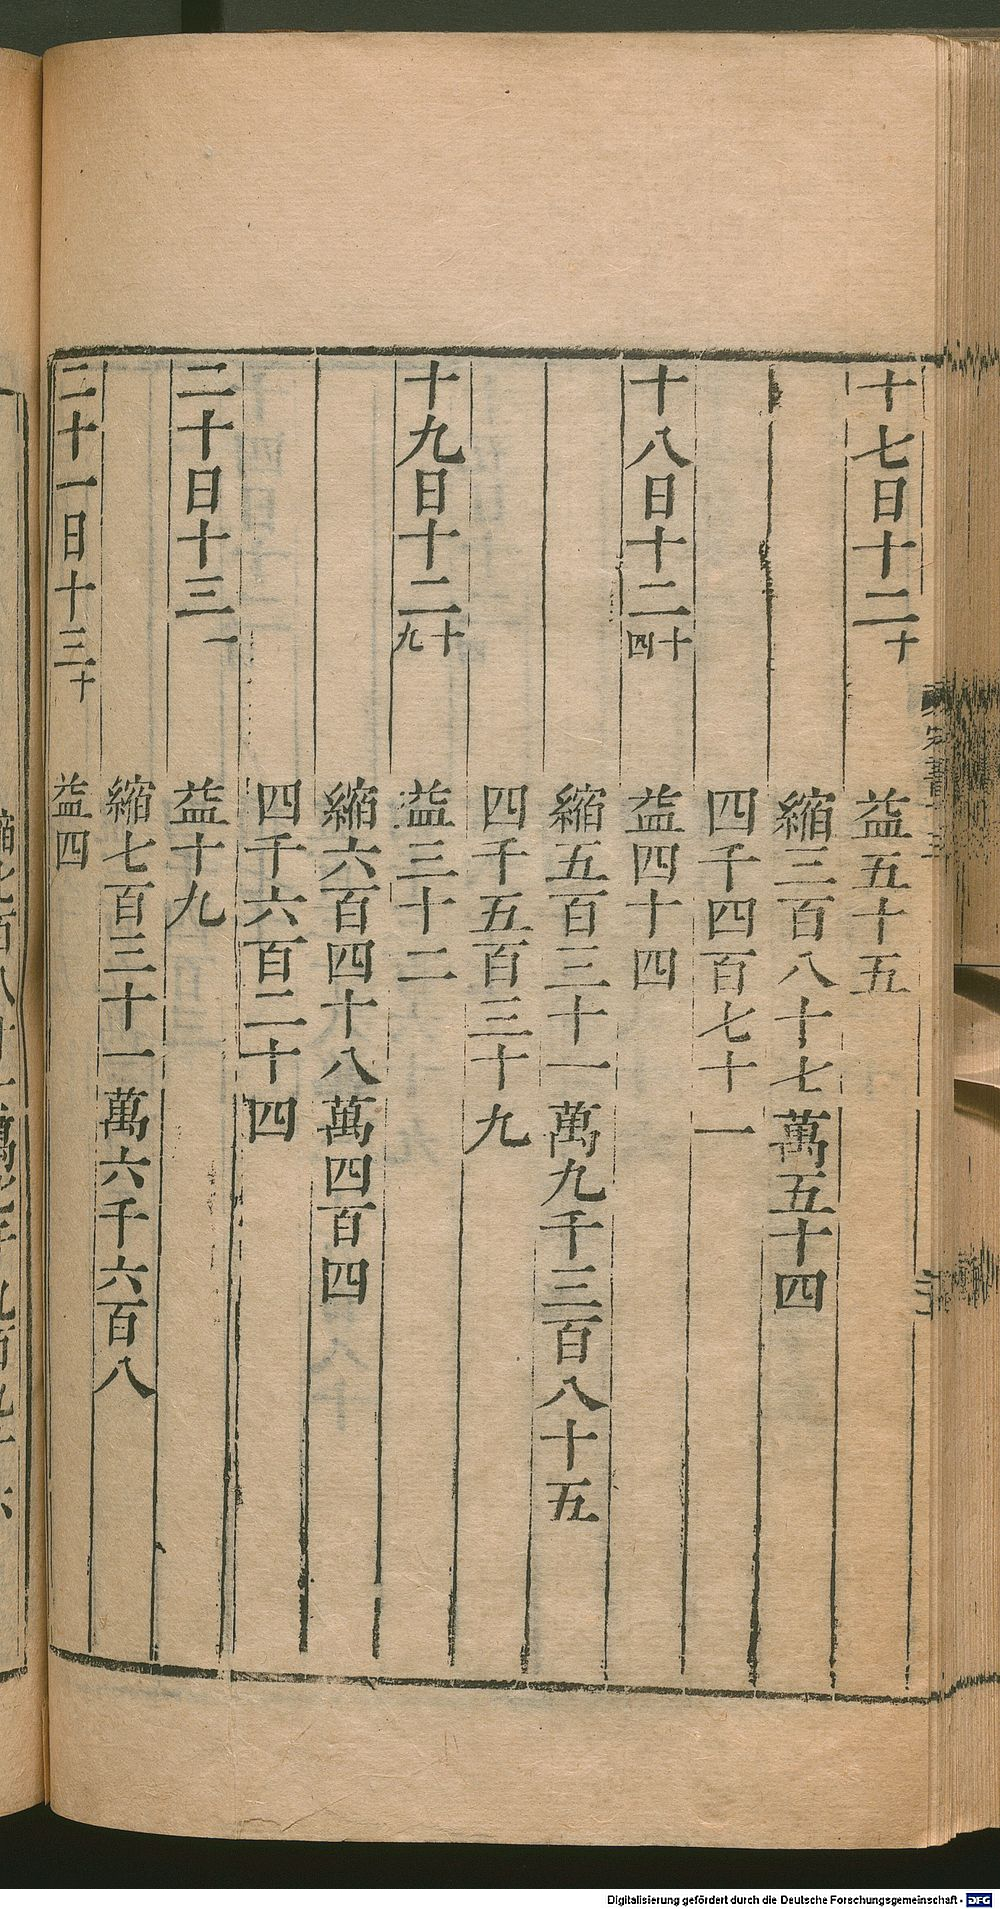 十七日十二十 益五十五
縮三百八十七萬五十四
四千四百七十一
十八日十二十四 益四十四
縮五百三十一萬九千三百八十五
四千五百三十九
十九日十二十九 益三十二
縮六百四十八萬四百四
四千六百二十四
二十日十三一 益十九
縮七百三十一萬六千六百八
二十一日十三十 益四
Digitalisierung gefördert durch die Deutsche Forschungsgemeinschaft - DFG